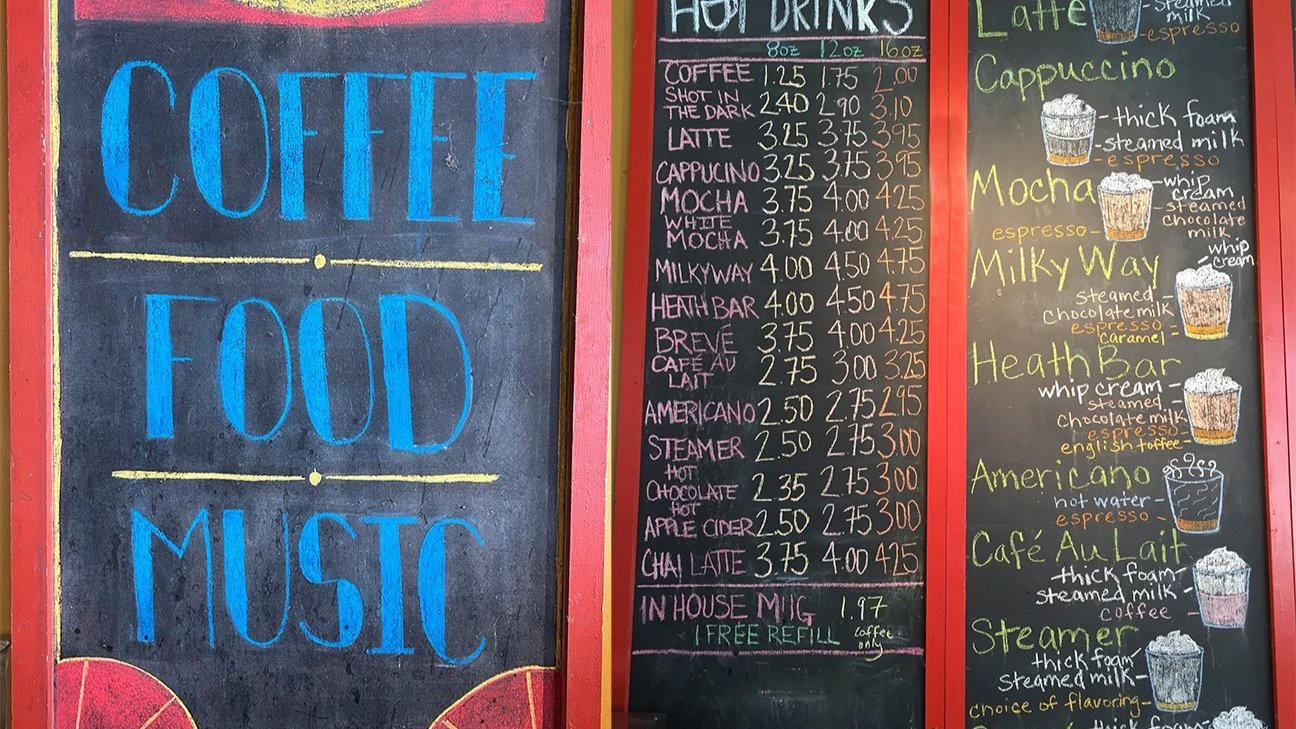 COFFEE
FOOD
MUSIC
HOT DRINKS
8oz 12oz 16oz
COFFEE 1.25 1.75 2.00
SHOT IN
THE DARK 2.40 2.90 3.10
LATTE 3.25 3.75 3.95
CAPPUCINO 3.25 3.75 3.95
MOCHA 3.75 4.00 4.25
WHITE
MOCHA 3.75 4.00 4.25
MILKYWAY 4.00 4.50 4.75
HEATH BAR 4.00 4.50 4.75
BREVÉ 3.75 4.00 4.25
CAFÉ AU
LAIT 2.75 3.00 3.25
AMERICANO 2.50 2.75 2.95
STEAMER 2.50 2.75 3.00
HOT
CHOCOLATE 2.35 2.75 3.00
HOT
APPLE CIDER 2.50 2.75 3.00
CHAI LATTE 3.75 4.00 4.25
IN HOUSE MUG 1.97
1 FREE REFILL coffee
only
Latte
steamed
milk
espresso
Cappuccino
thick foam
steamed milk
espresso
Mocha
whip
cream
steamed
chocolate
milk
espresso
Milky Way
whip
cream
steamed
chocolate milk
espresso
caramel
Heath Bar
whip cream
steamed
chocolate milk
espresso
english toffee
Americano
hot water
espresso
Café Au Lait
thick foam
steamed milk
coffee
Steamer
thick foam
steamed milk
choice of flavoring
thick foam